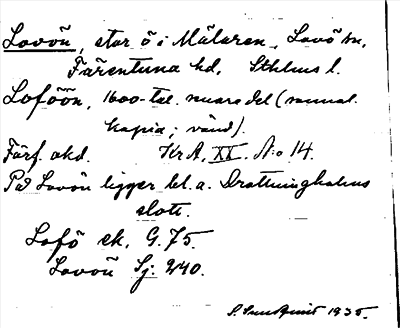 Lovön, stor ö i Mälaren, Lovö sn,
Färentuna hd, Sthlms l.
Loföön, 1600-tal. mars del (
kopia; vänd).
Förf. okd. KrA, XX. No 14.
På Lovön ligger bl. a. Drottningholms
slott.
Lofö sk. G. 75.
Lovön Sj. 240.
S. Sundquist 1935.